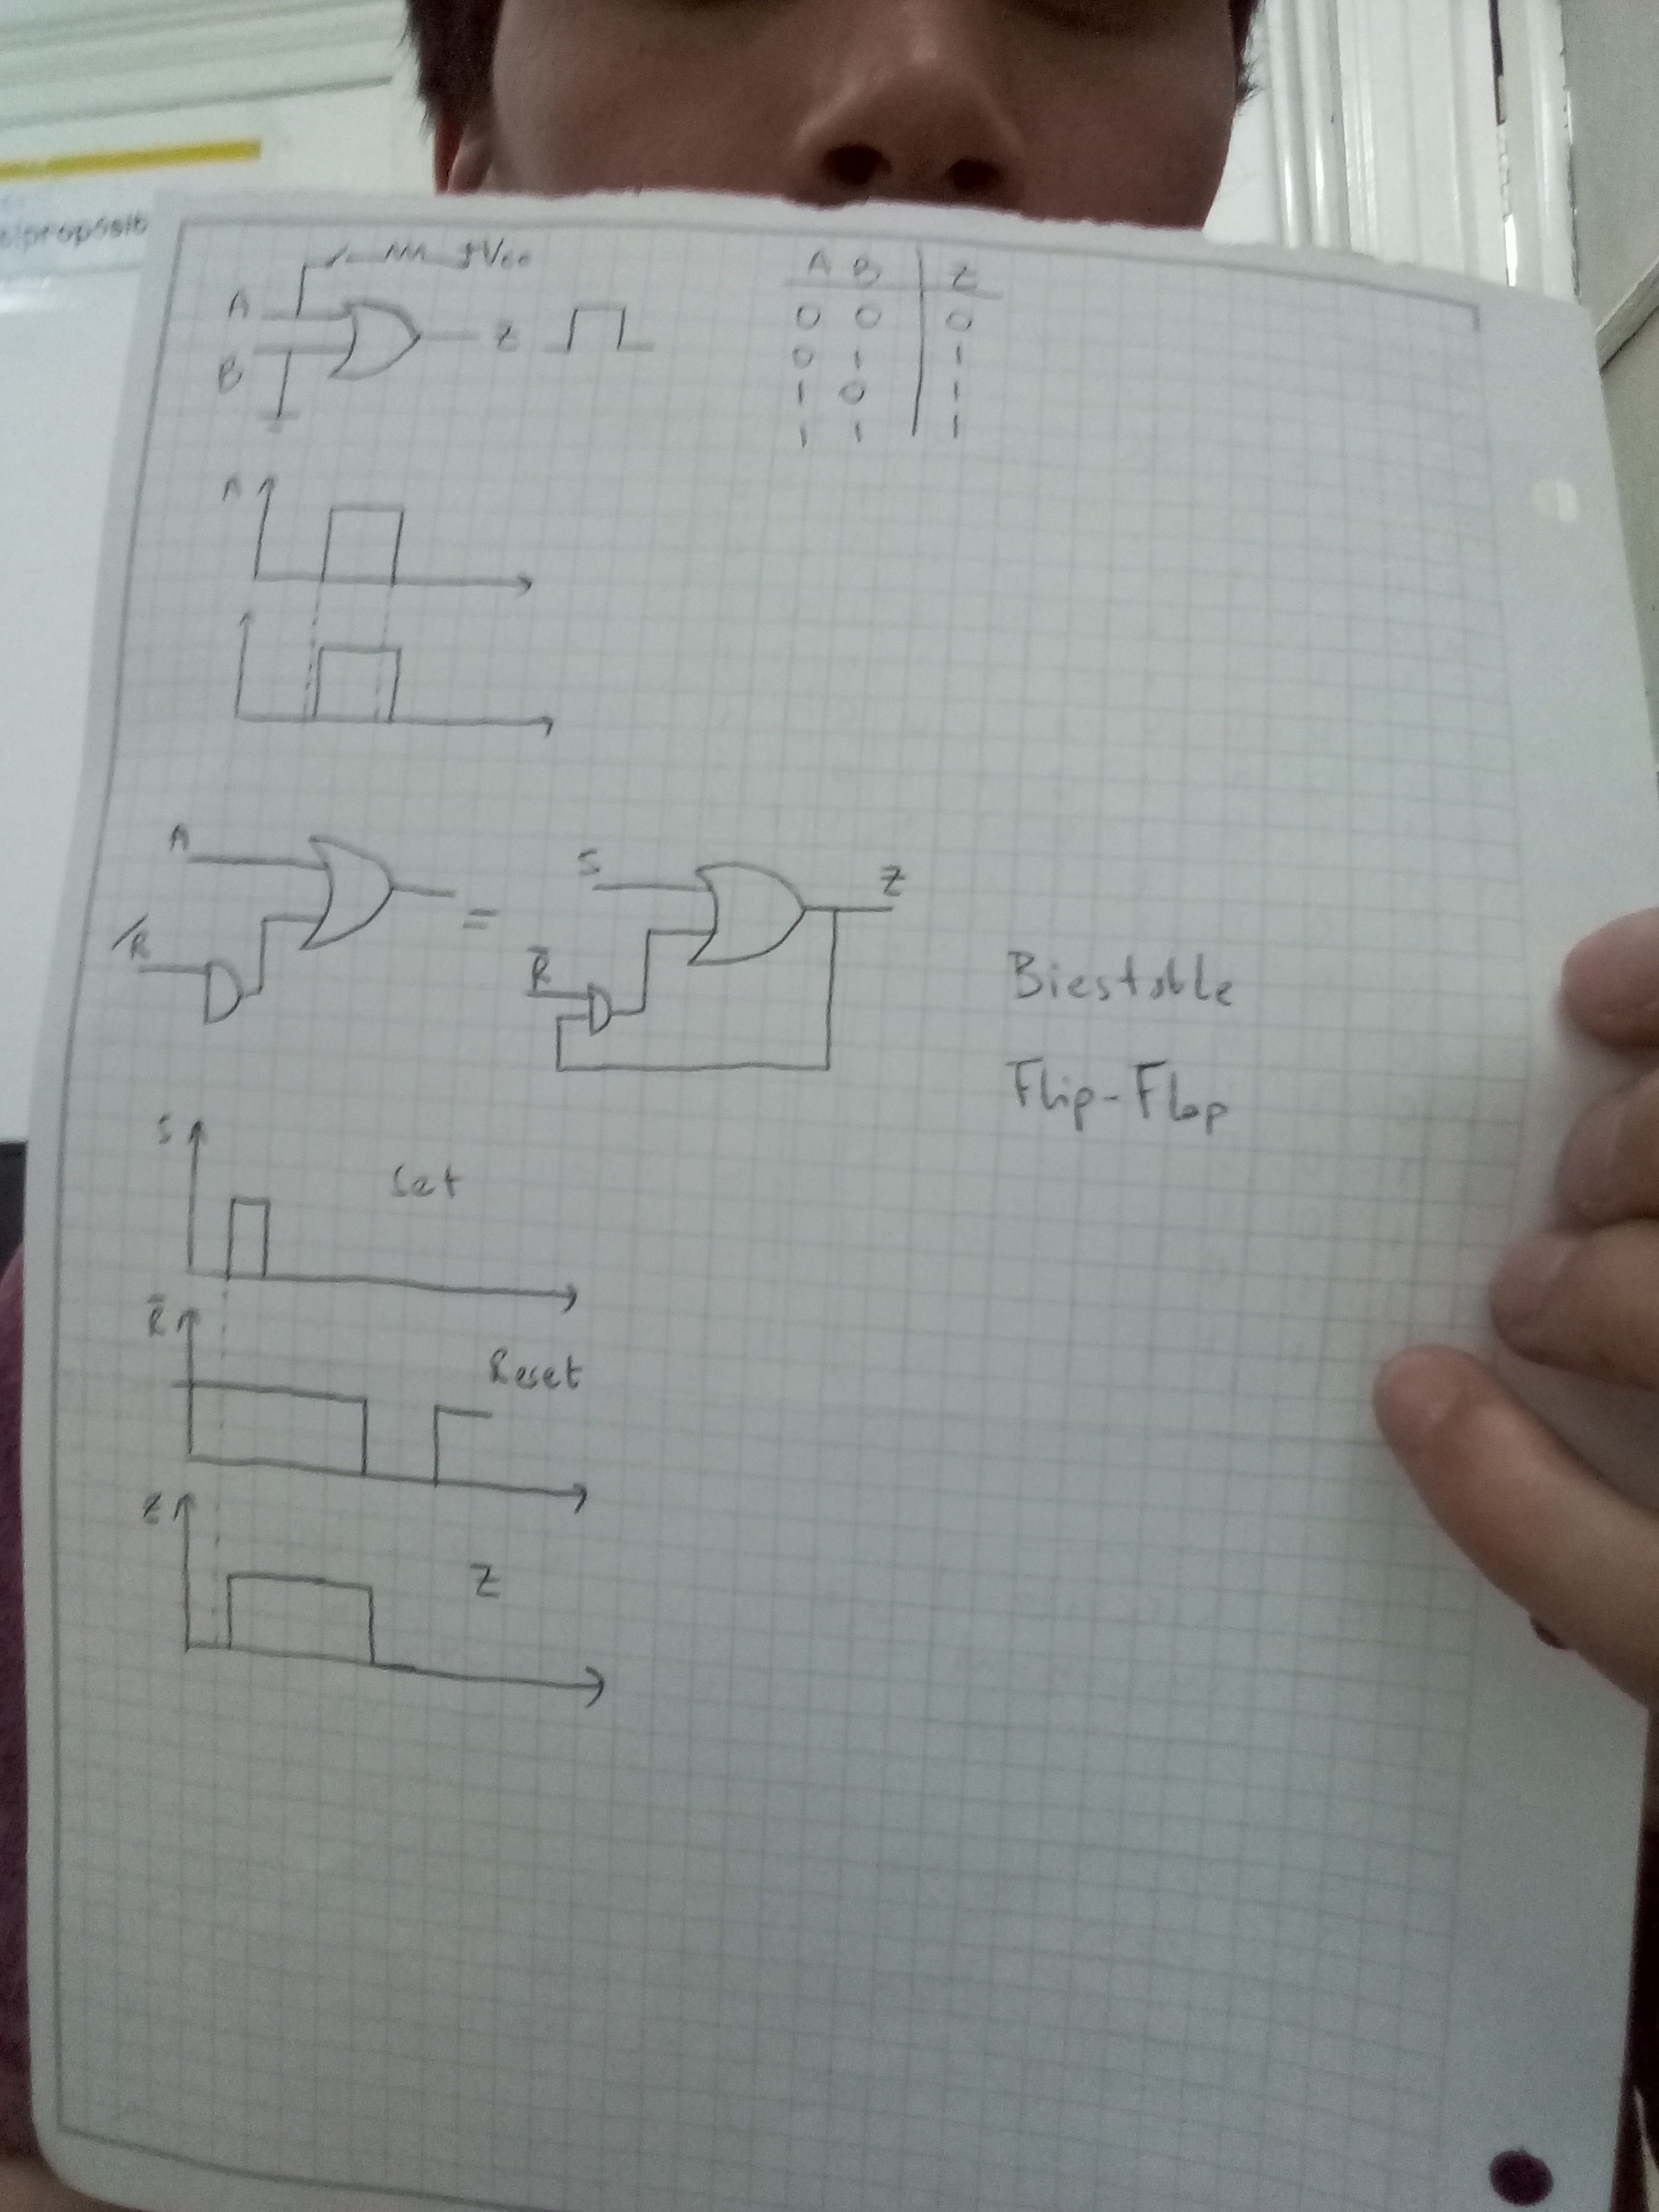 +Vcc
A
B
Z
A B Z
0 0 0
0 1 1
1 0 1
1 1 1
A
A
R
=
S
R̄
Z
Biestable
Flip-Flop
S
Set
R̄
Reset
Z
Z